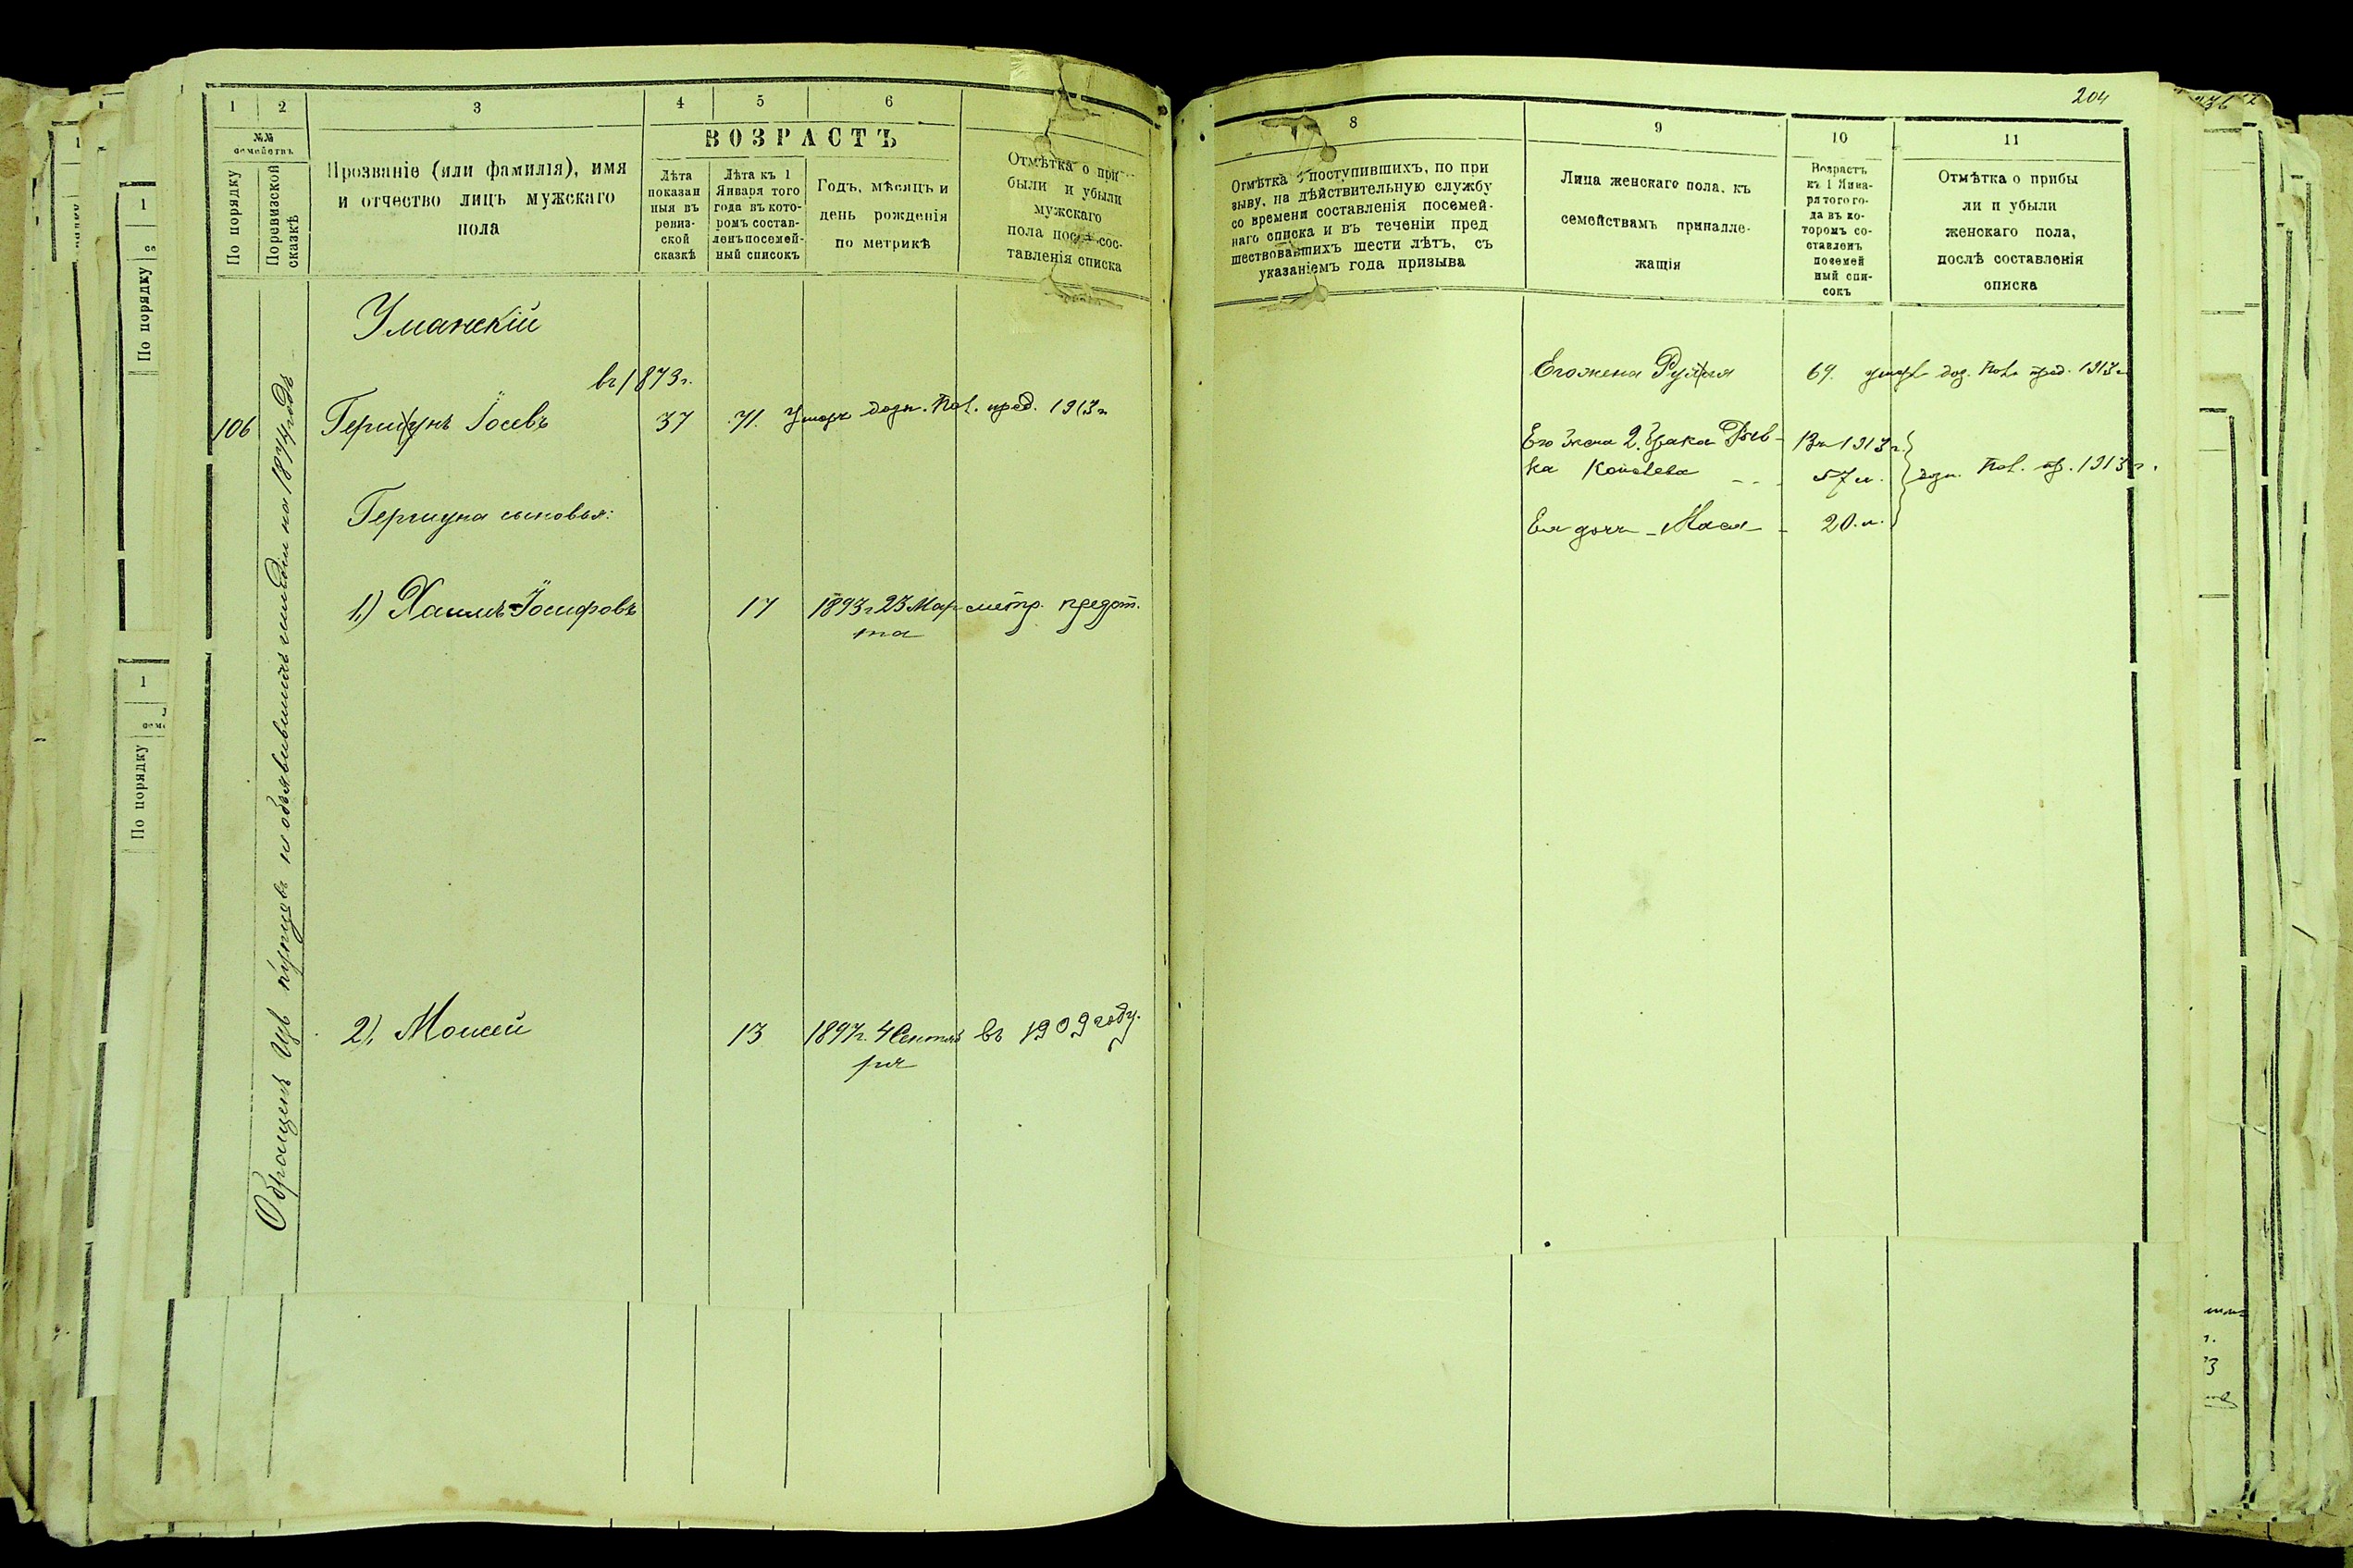 1
2
3
4
5
6
№№
семействъ
По порядку
По ревизской
сказкѣ
Прозваніе (или фамилія), имя
и отчество лицъ мужскаго
пола
ВОЗРАСТЪ
Лѣта
показан
ныя въ
ревиз-
ской
сказкѣ
Лѣта къ 1
Января того
года въ кото-
ромъ состав-
ленъ посемей-
ный списокъ
Годъ, мѣсяцъ и
день рожденія
по метрикѣ
Отмѣтка о при
были и убыли
мужскаго
пола сос-
тавленія списка
Уманскій
въ 1873 г.
106
Гершунъ Іосевъ
37
71.
Умеръ доп. пов. пред. 1913 г.
Гершуна сыновья:
1.) Хаимъ-Іосифовъ
17
1893 г. 23 Мар
та
метр. предст.
2), Моисей
13
1897 г. 4 Сентяб
ря
въ 1909 году.
Обращенъ изъ купцовъ необъявившихъ на 1874 годъ
204
8
9
10
11
Отмѣтка о поступившихъ, по при
зыву, на дѣйствительную службу
со времени составленія посемей-
наго списка и въ теченіи пред
шествовавшихъ шести лѣтъ, съ
указаніемъ года призыва
Лица женскаго пола, къ
семействамъ принадле-
жащія
Возрастъ
къ 1 Янва-
ря того го-
да въ ко-
торомъ со-
ставленъ
посемей
ный спи-
сокъ
Отмѣтка о прибы
ли и убыли
женскаго пола,
послѣ составленія
списка
Его жена
69.
пред. 1913 г.
Его жена 2. брака Рыв-
ка
Въ 1913 г.
57 л.
доп. пов. пр. 1913 г.
Ея дочь - Мася -
20. л.
1
По порядку
1
По порядку